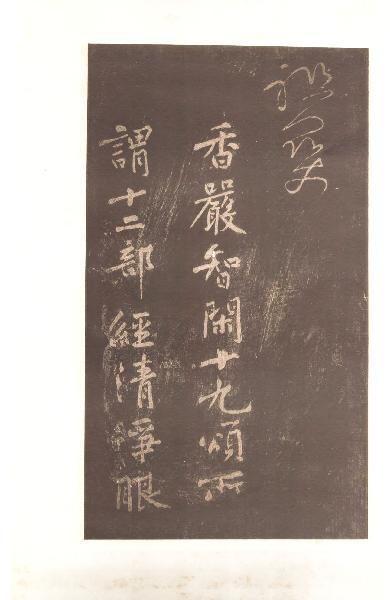 香嚴智閑十九頌所
謂十二部經清淨眼